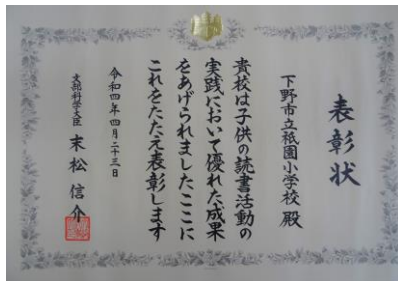 表彰状
下野市立祇園小学校 殿
貴校は子供の読書活動の
実践において優れた成果
をあげられましたここに
これをたたえ表彰します
令和四年四月二十三日
文部科学大臣 末松信介